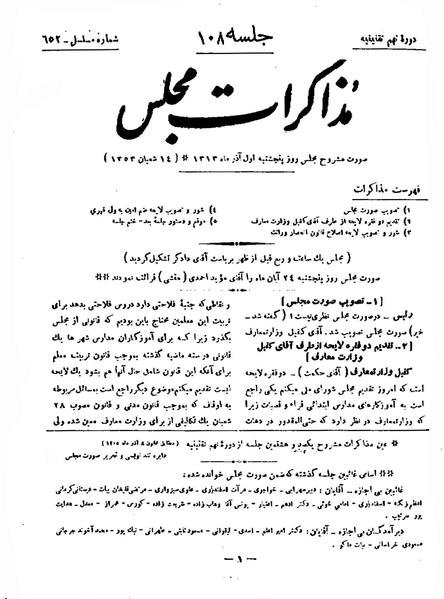 دورهٔ نهم تقنینیه
جلسه ۱۰۸
شماره مسلسل - ۶۵۲
مذاکرات مجلس
صورت مشروح مجلس روز پنجشنبه اول آذر ماه ۱۳۱۳ * (۱۴ شعبان ۱۳۵۳)
فهرست مذاکرات
۱) تصویب صورت مجلس
۲) تقدیم دو فقره لایحه از طرف آقای کفیل وزارت معارف
۳) شور و تصویب لایحه اصلاح قانون انحصار وراثت
۴) شور و تصویب لایحه ضم امین به ولی قهری
۵) موقع و دستور جلسه بعد - ختم جلسه
(مجلس یک ساعت و ربع قبل از ظهر بریاست آقای دادگر تشکیل گردید)
صورت مجلس روز پنجشنبه ۲۴ آبان ماه را آقای مؤید احمدی (منشی) قرائت نمودند
[۱- تصویب صورت مجلس]
رئیس - در صورت مجلس نظری نیست؟ (گفته شد -
خیر) صورت مجلس تصویب شد. آقای کفیل وزارت معارف
[۲- تقدیم دو فقره لایحه از طرف آقای کفیل
وزارت معارف]
کفیل وزارت معارف (آقای حکمت) - دو فقره لایحه
است که امروز تقدیم مجلس شورای ملی میکنم یکی راجع
به آموزگارهای مدارس ابتدائی قراء و قصبات زیرا
که وزارت معارف در نظر دارد که حتی المقدور در دهات
و نقاطی که جنبهٔ فلاحتی دارد دروس فلاحتی بدهد برای
تربیت این معلمین محتاج باین بودیم که قانونی از مجلس
بگذرد زیرا که برای آموزگاران مدارس شهر ها یک
قانونی در سنه ماضیه گذشته بموجب قانون تربیت معلم
برای آنکه این قانون شامل حال آنها هم بشود یک لایحه
ایست تقدیم میکنم و موضوع دیگر راجع است به مسائل مربوطه
به اوقاف که بموجب قانون مدنی و قانون مصوب ۲۸
شعبان یک تکالیفی از برای وزارت معارف معین شده ولی
عین مذاکرات مشروح یکصد و هشتمین جلسه از دورهٔ نهم تقنینیه
(مطابق قانون ۸ آذر ماه ۱۳۰۵)
دایره تند نویسی و تحریر صورت مجلس
اسامی غائبین جلسه گذشته که ضمن صورت مجلس خوانده شده:
غائبین بی اجازه - آقایان:
دیر آمدگان بی اجازه - آقایان:
- ۱ -